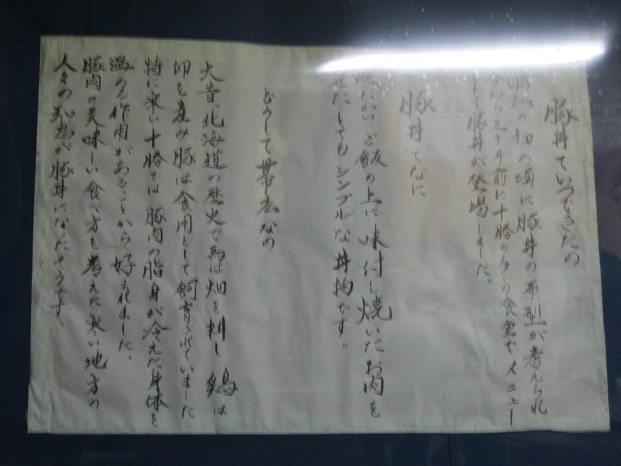 豚丼ていつできたの
昭和の初の頃に豚丼の原型が考えられ
年前に十勝の多くの食堂でメニュー
として豚丼が登場しました。
豚丼てなに
温かいご飯の上に味付し焼いたお肉を
のせたとてもシンプルな丼物です。
どうして帯広なの
大昔、北海道の歴史で馬は畑を耕し鶏は
卵を産み豚は食用として飼育されていました
特に寒い十勝では豚肉の脂身が冷えた身体を
温める作用があることから好まれました。
豚肉の美味しい食べ方を考えた寒い地方の
人々の知恵が豚丼になったそうです。